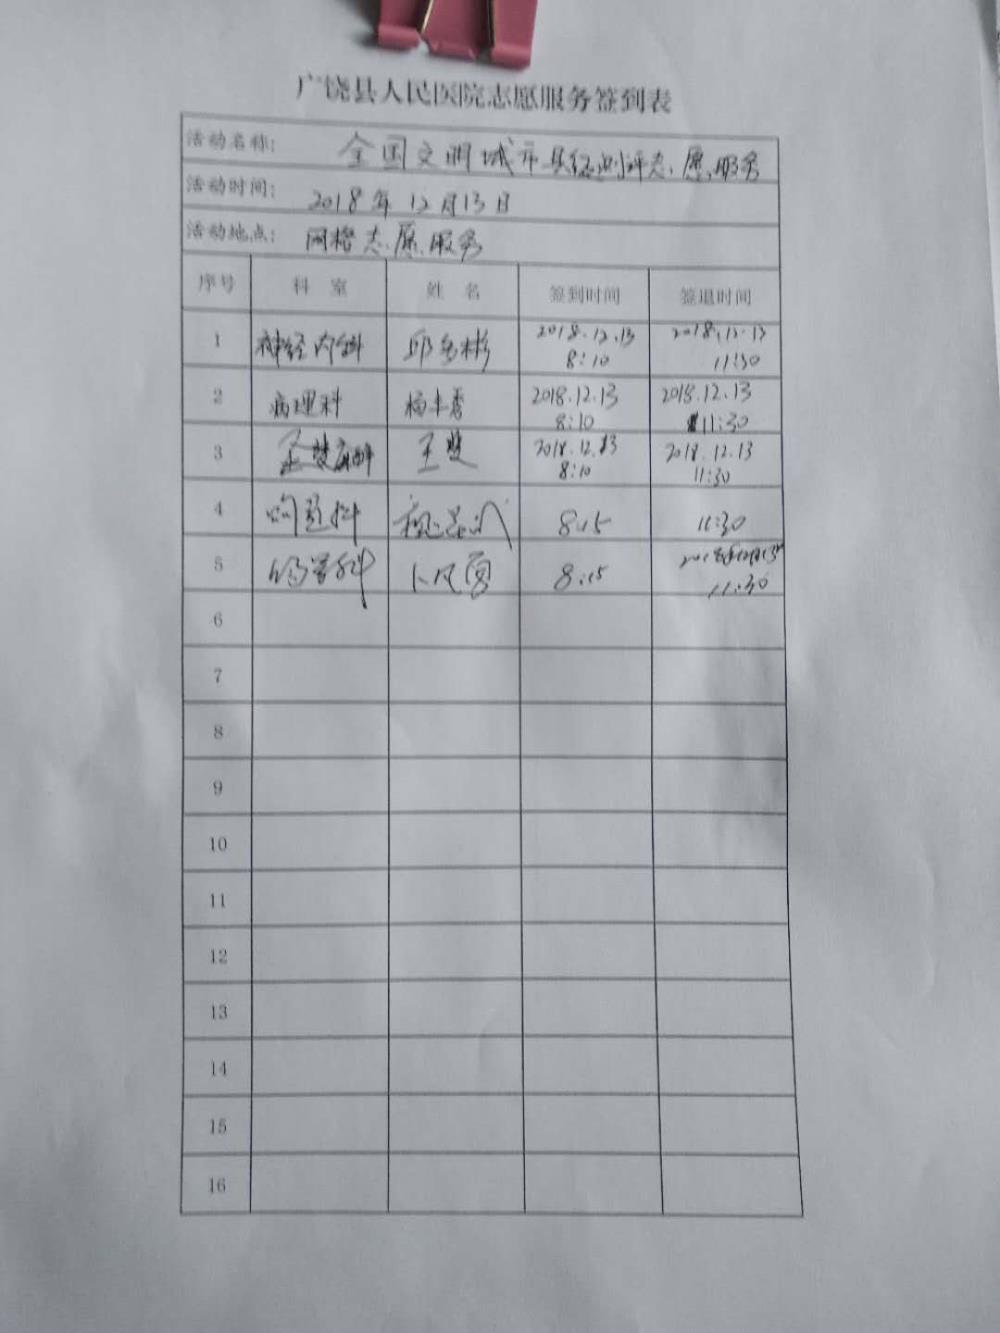 广饶县人民医院志愿服务签到表
活动名称: 全国文明城市县级测评志愿服务
活动时间: 2018年12月13日
活动地点: 网格志愿服务
序号 科 室 姓 名 签到时间 签退时间
1 神经内科 邱 彬 2018.12.13 8:10 2018.12.13 11:30
2 病理科 杨丰秀 2018.12.13 8:10 2018.12.13 11:30
3 王 2018.12.13 8:10 2018.12.13 11:30
4 科 8:15 11:30
5 科 卜凤 8:15 2018年12月13日 11:30
6
7
8
9
10
11
12
13
14
15
16